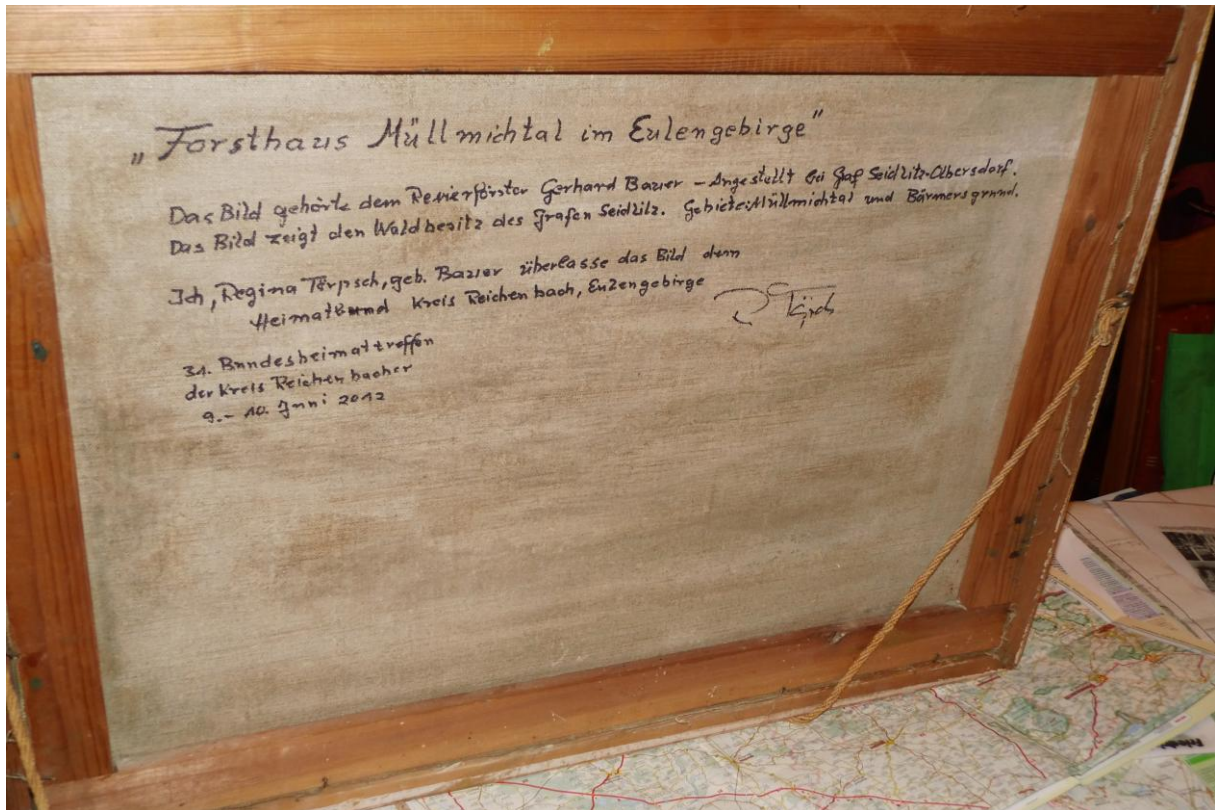 „Forsthaus Müllmichtal im Eulengebirge"
Das Bild gehörte dem Revierförster Gerhard Bauer – Angestellt bei Graf Seidlitz-Olbersdorf.
Das Bild zeigt den Waldbesitz des Grafen Seidlitz. Gebiete: Müllmichtal und Bärmersgrund.
Ich, Regina Törpsch, geb. Bauer überlasse das Bild dem
Heimatbund Kreis Reichenbach, Eulengebirge
31. Bundesheimattreffen
der Kreis Reichenbacher
9.- 10. Juni 2012